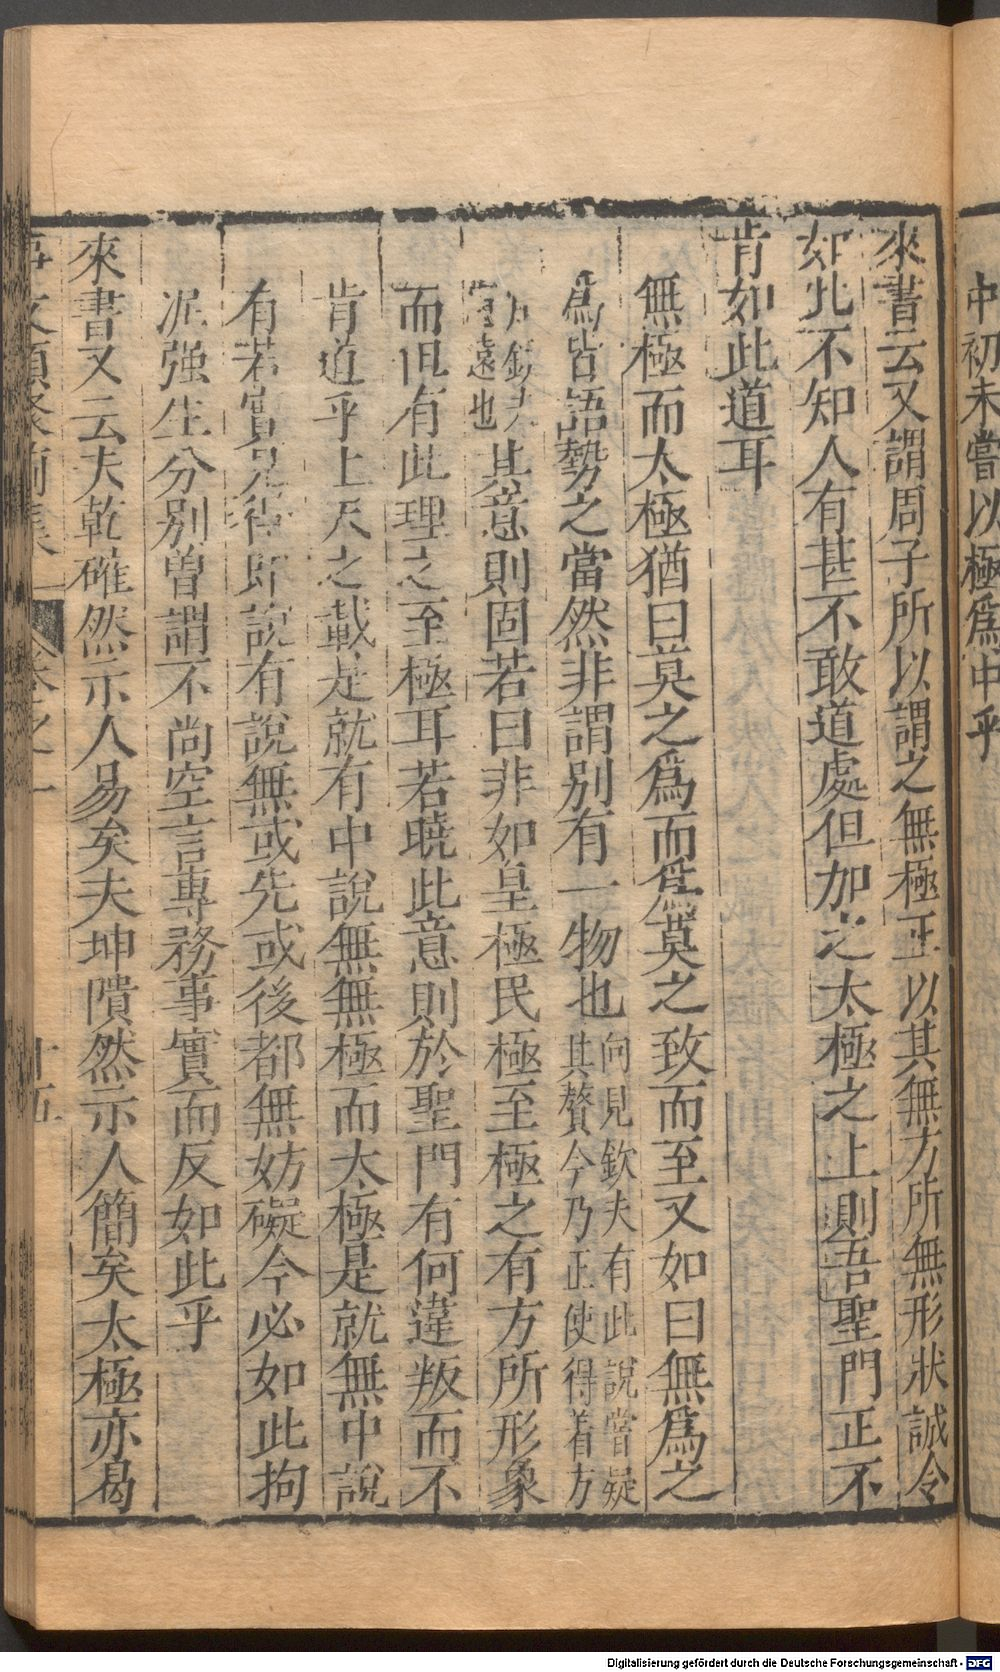 中初未嘗以極爲中乎
來書云又謂周子所以謂之無極正以其無方所無形狀誠令
如此不知人有甚不敢道處但加之太極之上則吾聖門正不
肯如此道耳
無極而太極猶曰莫之爲而爲莫之致而至又如曰無爲之
爲皆語勢之當然非謂別有一物也
向見欽夫有此說嘗疑
其贅今乃正使得着方
知欽夫
遠也
其意則固若曰非如皇極民極至極之有方所形象
而但有此理之至極耳若曉此意則於聖門有何違叛而不
肯道乎上天之載是就有中說無無極而太極是就無中說
有若實見得即說有說無或先或後都無妨礙今必如此拘
泥强生分別曾謂不尚空言專務事實而反如此乎
來書又云夫乾確然示人易矣夫坤隤然示人簡矣太極亦曷
事文類聚前集 卷之一 十五
Digitalisierung gefördert durch die Deutsche Forschungsgemeinschaft - DFG